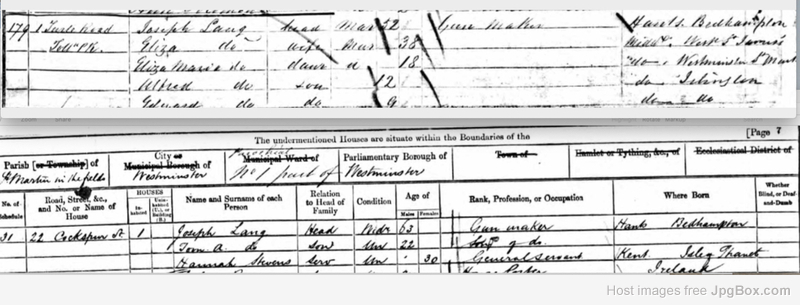 179 1 Joseph Lang head Mar 52 Gun Maker Hants. Bedhampton
Eliza do wife Mar 38 Middx. West St James
Eliza Maria do daur u 18 do Westminster St Mart
Alfred do son 12 do Islington
Edward do do 9 do do
The undermentioned Houses are situate within the Boundaries of the [Page 7
Parish [or Township] of City or Municipal Borough of Municipal Ward of Parliamentary Borough of Town of Hamlet or Tything, &c., of Ecclesiastical District of
St Martin in the fields Westminster No 1 part of Westminster
No. of Schedule Road, Street, &c., and No. or Name of House HOUSES In-habited Unin-habited (U.), or Building (B.) Name and Surname of each Person Relation to Head of Family Condition Age of Males Females Rank, Profession, or Occupation Where Born Whether Blind, or Deaf-and-Dumb
31 22 Cockspur St 1 Joseph Lang Head Widr 63 Gun maker Hants Bedhampton
Tom A. do Son Un 22 of do.
Hannah Stevens Serv Un 30 General servant Kent. Isle of Thanet
Ireland
Host images free JpgBox.com